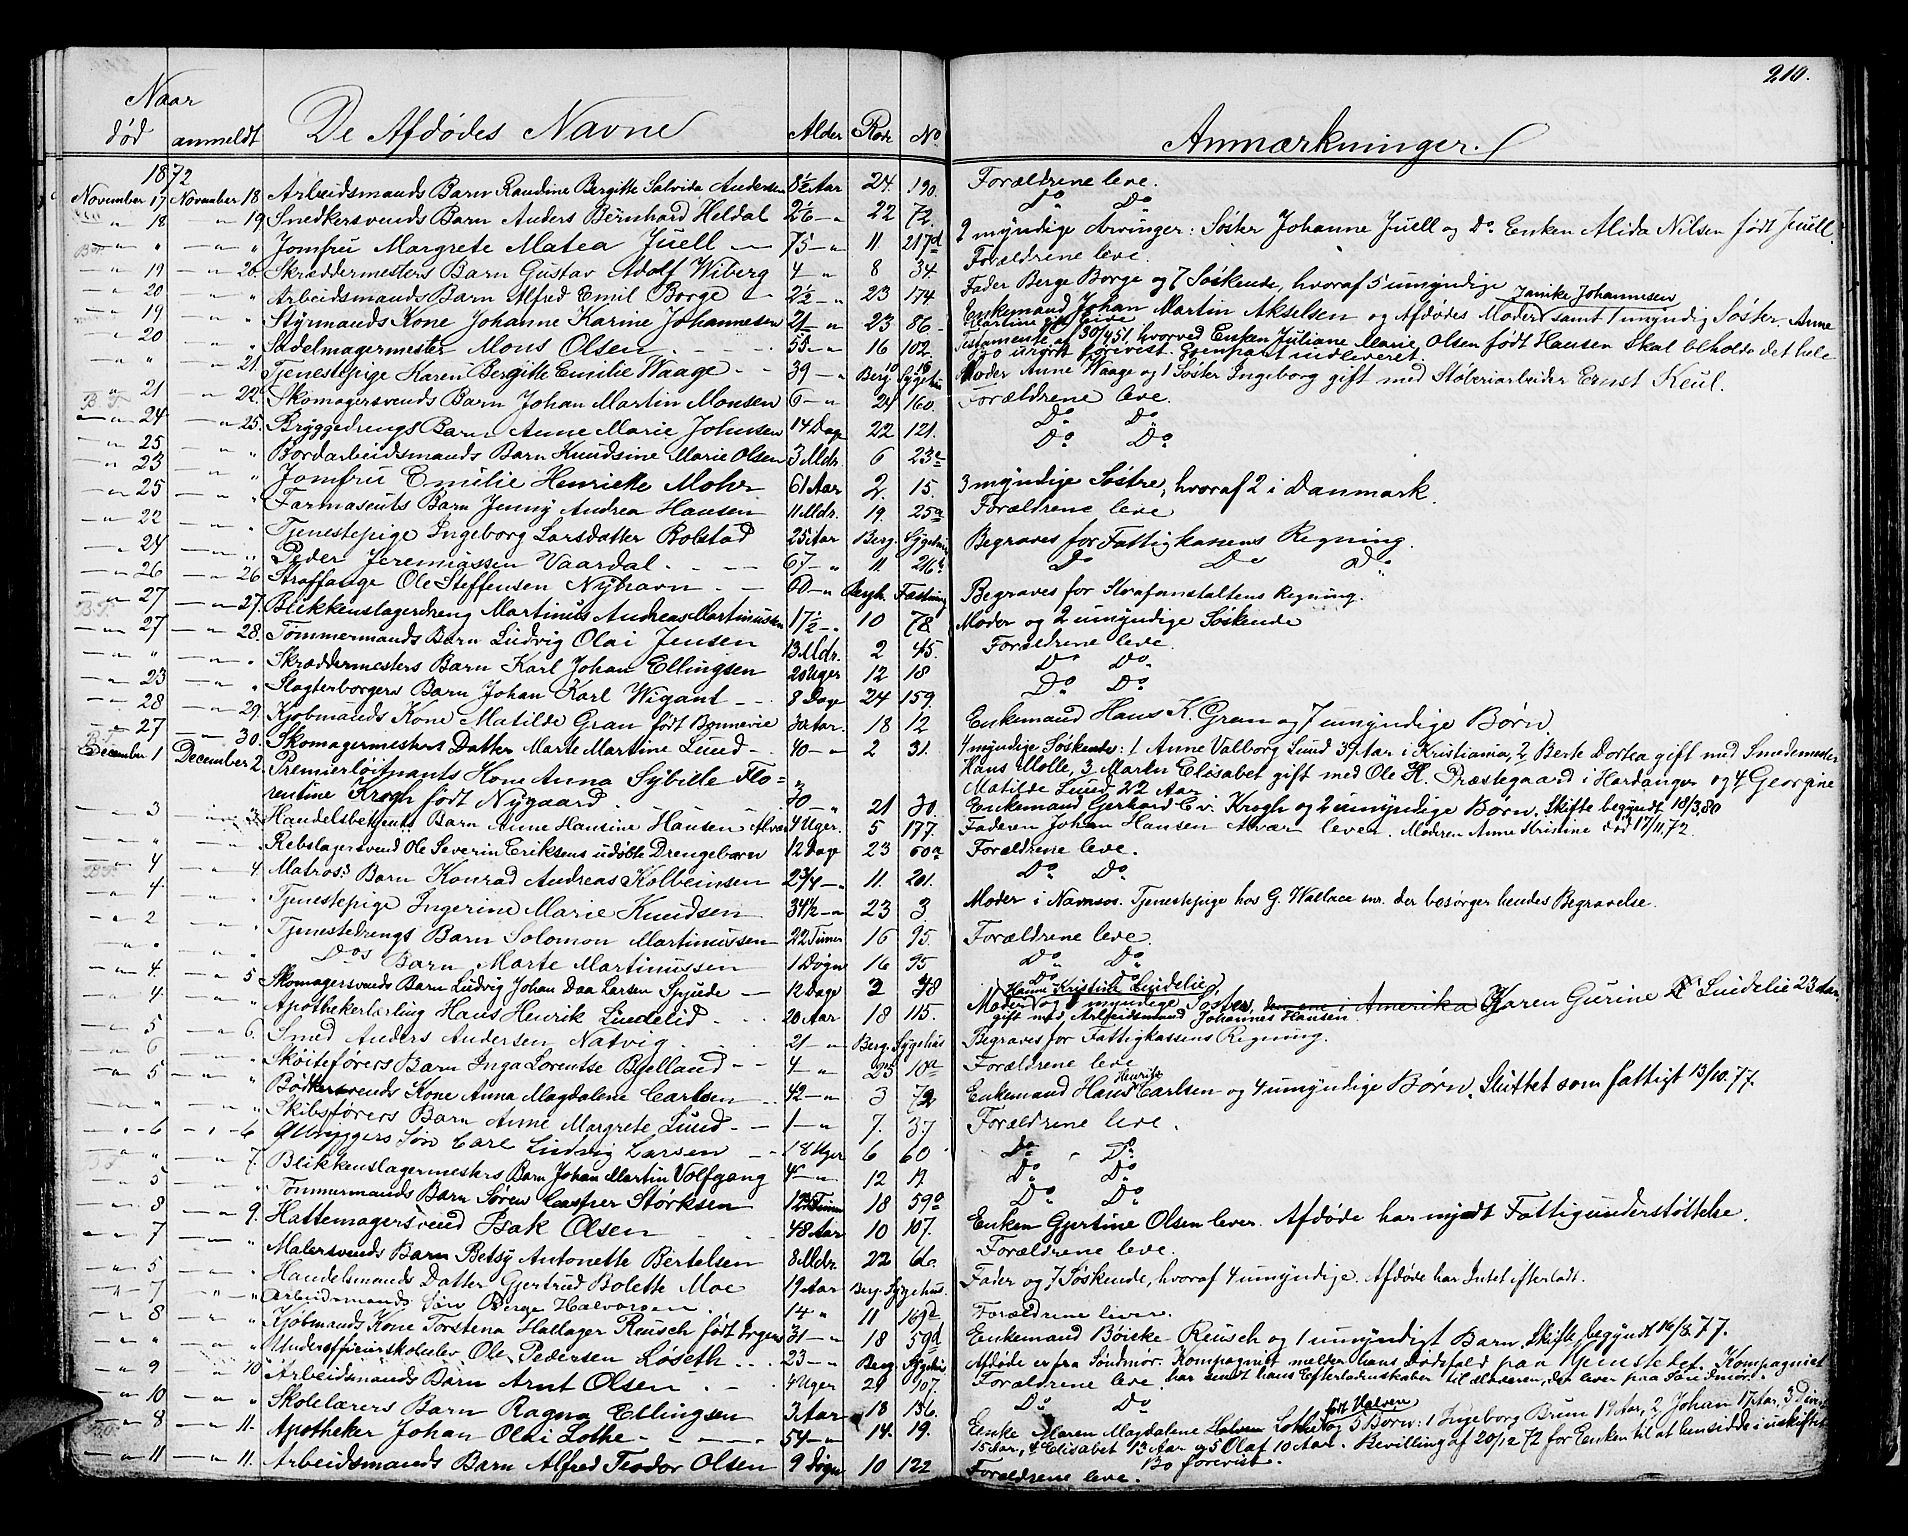 210.
Naar
død anmeldt De Afdødes Navne Alder Rode No. Anmærkninger.
1872
November 17 November 18 Arbeidsmands Barn Randine Bergitte Salvida Andersen 8½ Aar 24. 190. Forældrene leve.
" 18 " 19 Snedkersvends Barn Anders Bernhard Heldal 2½ " 22 72. Do Do
" " " " Jomfru Margrete Matea Juell 75 " 11. 217d 2 myndige Arvinger: Søster Johanne Juell og Do Enken Alida Nilsen født Juell.
" 19 " 20. Skræddermesters Barn Gustav Adolf Wiberg 4 " 8 34. Forældrene leve.
" 20 " " Arbeidsmands Barn Alfred Emil Borge 2½ " 23 174 Fader Berge Borge og 7 Søskende, hvoraf 5 umyndige
" 19 " " Styrmands Kone Johanne Karine Johannesen 21 " 23 86 Enkemand Johan Martin Akselsen og Afdødes Moder Janike Johannesen samt 1 myndig Søster. Anne Martine
" 20 " " Sadelmagermester Mons Olsen 55 " 16 102. Testamente af 30/4 51, hvorved Enken Juliane Marie Olsen født Hansen skal beholde det hele
Bo uskiftet forevist. Gjenpart indleveret.
" " " 21. Tjenestepige Karen Bergitte Emilie Waage 39 " Berg. Sygehus Moder Anne Waage og 1 Søster Ingeborg gift med Støberiarbeider Ernst Keul.
" 21 " 22. Skomagersvends Barn Johan Martin Monsen 6 " 24 160. Forældrene leve.
" 24 " 25. Bryggedrengs Barn Anne Marie Johnsen 14 Dage 22 121. Do Do
" 25 " " Bordarbeidsmands Barn Knudsine Marie Olsen 3 Mdr. 6 23a Do Do
" 23 " " Jomfru Emilie Henrikke Mohr 61 Aar 2. 15. 3 myndige Søstre, hvoraf 2 i Danmark.
" 25 " " Farmaseuts Barn Jenny Andrea Hansen 11 Mdr. 19. 25a Forældrene leve
" 22 " " Tjenestepige Ingeborg Larsdatter Rolstad 25 Aar Berg. Sygehus Begraves for Fattigkassens Regning.
" 24 " " Peder Jeremiassen Vaardal 67 " 11 216 Do Do Do
" 26 " 26 Straffange Ole Steffensen Nyhavn 60 " Bergh. Fæstning Begraves for Strafanstaltens Regning.
" 27 " 27. Blikkenslagerdreng Martinus Andreas Martinussen 17½ " 10 78. Moder og 2 umyndige Søskende
" 27 " 28. Tømmermands Barn Ludvig Olai Jensen 13 Mdr. 2 45. Forældrene leve
" " " " Skræddermesters Barn Karl Johan Ellingsen 20 Uger 12 18 Do Do
" 23 " " Slagterborgers Barn Johan Karl Wigant 8 Dage 24 159. Do Do
" 28 " 29. Kjøbmands Kone Matilde Gran født Bonnevie 30 Aar. 18 12 Enkemand Hans K. Gran og 7 umyndige Børn.
" 27 " 30. Skomagermesters Datter Marte Martine Lund 40 " 2 31. 4 myndige Søskende: 1 Anne Valborg Lund 37 Aar i Kristiania, 2 Berte Dortea gift med Smedemester
Hans Molle, 3 Marta Elisabet gift med Ole H. Præstegaard i Hardanger og 4 Georgine
Matilde Lund 22 Aar
December 1 December 2. Premierløitnants Kone Anna Sybille Florentine Krogh født Nygaard 30 " 21 30. Enkemand Gerhard E v. Krogh og 2 umyndige Børn. Skifte begyndt 18/3,80
" 3 " " Handelsbetjents Barn Anne Hansine Hansen Alvær 4 Uger. 5 177. Faderen Johan Hansen Alvær lever. Moderen Anne Kristine død 17/11,72.
" " " " Rebslagersvend Ole Severin Eriksens udøbte Drengebarn 12 Dage 23 60a Forældrene leve.
" 4 " 4. Matros's Barn Konrad Andreas Kolbeinsen 2¾ " 11. 201. Do Do
" 4. " " Tjenestepige Ingerine Marie Knudsen 34½ " 23 3. Moder i Namsos. Tjenestepige hos G. Wallace snr. der besørger hendes Begravelse.
" 2 " " Tjenestedrengs Barn Solomon Martinussen 22 Timer 16 95. Forældrene leve.
" " " " Do's Barn Marte Martinussen 1 Døgn 16 95 Do Do
" 4. " 5 Skomagersvends Barn Ludvig Johan Daa Larsen Spjude 12 Dage 2 38 Do Do
" 4. " " Apothekerlærling Hans Henrik Lindelid 20 Aar 18 115. Moder Hanne Kristine Lindelid og 1 myndige Søster, Karen Gurine Lindelie 23 Aar,
gift med Arbeidsmand Johannes Hansen.
" 5 " 6. Smed Anders Andersen Natvig 21 " Berg. Sygehus Begraves for Fattigkassens Regning.
" 6 " " Skøiteførers Barn Inga Lorentse Bjelland 4 " 23 10a Forældrene leve
" 5 " " Bødkersvends Kone Anna Magdalene Carlsen 42 " 3 72 Enkemand Hans Henrik Carlsen og 4 umyndige Børn. Sluttet som fattigt 13/10.77.
" " " " Skibsførers Barn Anne Margrete Lund 1 " 7. 37 Forældrene leve.
" 6 " 6. Ølbryggers Søn Carl Ludvig Larsen 18 Uger 6 60 Do Do
" " " 7. Blikkenslagermesters Barn Johan Martin Volfgang 4 " 12 Do Do
" 5 " " Tømmermands Barn Søren Casper Størksen 12 Timer 18 59a Do Do
" 8 " 9. Hattemagersvend Isak Olsen 48 Aar 10 107. Enken Gjertine Olsen lever. Afdøde har nydt Fattigunderstøttelse.
" 7 " " Malersvends Barn Betsy Antonette Bertelsen 8 Mdr. 22 Forældrene leve.
" 5 " " Handelsmands Datter Gjertrud Bolette Moe 19 Aar Berg. Sygehus. Fader og 7 Søskende, hvoraf 4 umyndige. Afdøde har Intet efterladt.
" 7 " " Arbeidsmands Søn Berge Halvorsen 14 " 11 169d Forældrene lever.
" 8 " " Kjøbmands Kone Torstena Hallager Reusch født Irgens 31 " 18 59d Enkemand Børcke Reusch og 1 umyndigt Barn. Skifte begyndt 16/8.77.
" " " " Underofficierskoleelev Ole Pedersen Løseth 23 " Berg. Sygehus Afdøde er fra Søndmør. Kompagniet melder hans Dødsfald paa Hjemstedet. Kompagniet
har sendt hans Efterladenskaber til Moderen, der lever paa Søndmør.
" 9 " 10. Arbeidsmands Barn Arnt Olsen 4 Uger 24 107. Forældrene leve
" 10 " " Skolelærers Barn Ragna Ellingsen 3 Aar 18 136. Do Do
" 8 " 11. Apotheker Johan Olai Lothe 54 " 14. 19. Enke Maren Magdalene Lothe født Halvsen og 5 Børn: 1 Ingeborg Brun 19 Aar, 2 Johan 17 Aar, 3
15 Aar, 4 Elisabet 13 Aar og 5 Olaf 10 Aar. Bevilling af 20/12 72 for Enken til at hensidde i uskiftet
Bo forevist.
" 11 " 11. Arbeidsmands Barn Alfred Teodor Olsen 9 Døgn 10 122 Forældrene leve.